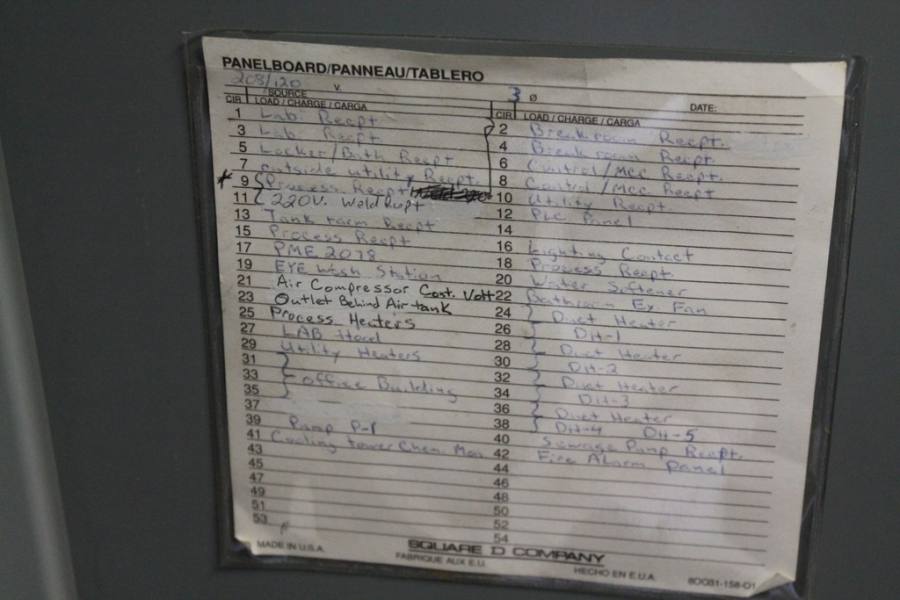 PANELBOARD/PANNEAU/TABLERO
208/120 V. 3 Ø
/SOURCE DATE:
CIR LOAD / CHARGE / CARGA
1 Lab Recpt
3 Lab Recpt
5 Locker/Bath Recpt
7 Outside utility Recpt
9 Process Recpt
11 220V. Weld Rcpt
13 Tank farm Recpt
15 Process Recpt
17 PME 2078
19 EYE Wash Station
21 Air Compressor Cont. Volt
23 Outlet Behind Air tank
25 Process Heaters
27 LAB Hood
29 Utility Heaters
31
33 Office Building
35
37
39 Pump P-1
41 Cooling tower Chem. Mon
43
45
47
49
51
53
CIR LOAD / CHARGE / CARGA
2 Breakroom Recpt.
4 Breakroom Recpt.
6 Control/Mcc Recpt.
8 Control/Mcc Recpt
10 Utility Recpt.
12 PLC Panel
14
16 Lighting Contact
18 Process Recpt.
20 Water Softener
22 Bathroom Ex. Fan
24 Duct Heater
26 DH-1
28 Duct Heater
30 DH-2
32 Duct Heater
34 DH-3
36 Duct Heater
38 DH-4 DH-5
40 Sewage Pump Recpt.
42 Fire Alarm Panel
44
46
48
50
52
54
MADE IN U.S.A.
SQUARE D COMPANY
FABRIQUE AUX E.U.
HECHO EN E.U.A.
80031-158-01